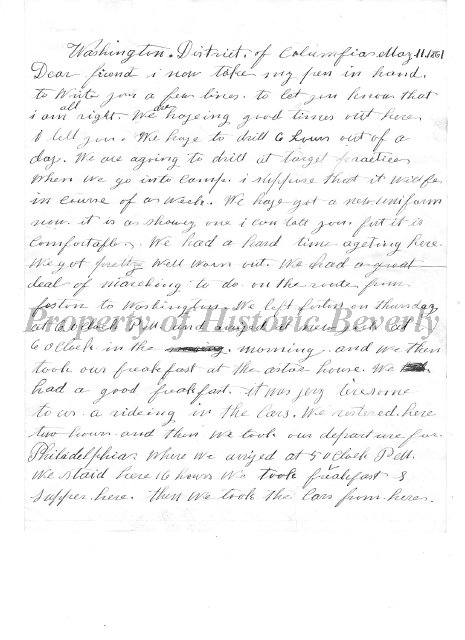 Washington. District. of Columbia May 11. 1861
Dear friend i now take my pen in hand.
to Write you a few lines. to let you know that
i am all right. We are haveing good times out here
I tell you. We have to drill 6 hours out of a
day. We are agoing to drill at target practice
When we go into camp. i suppose that it will be
in course of a week. We have got a new uniform
now. it is a showey one i can tell you. but it is
comfortable. We had a hard time ageting here
We got pretty well worn out. We had a great
deal of marching to do on the route from
boston to Washington. We left boston on thursday
at 6 oClock P.M and arived at new york at
6 oClock in the morning. and we then
took our breakfast at the astor house. We
had a good breakfast. it was very tiresome
to us a rideing in the Cars. We rested here
two hours and then we took our departure for
Philidelphia. where we arived at 5 oClock P.M.
We staid here 16 hours We took breakfast &
supper here. then we took the Cars from here.
Property of Historic Beverly